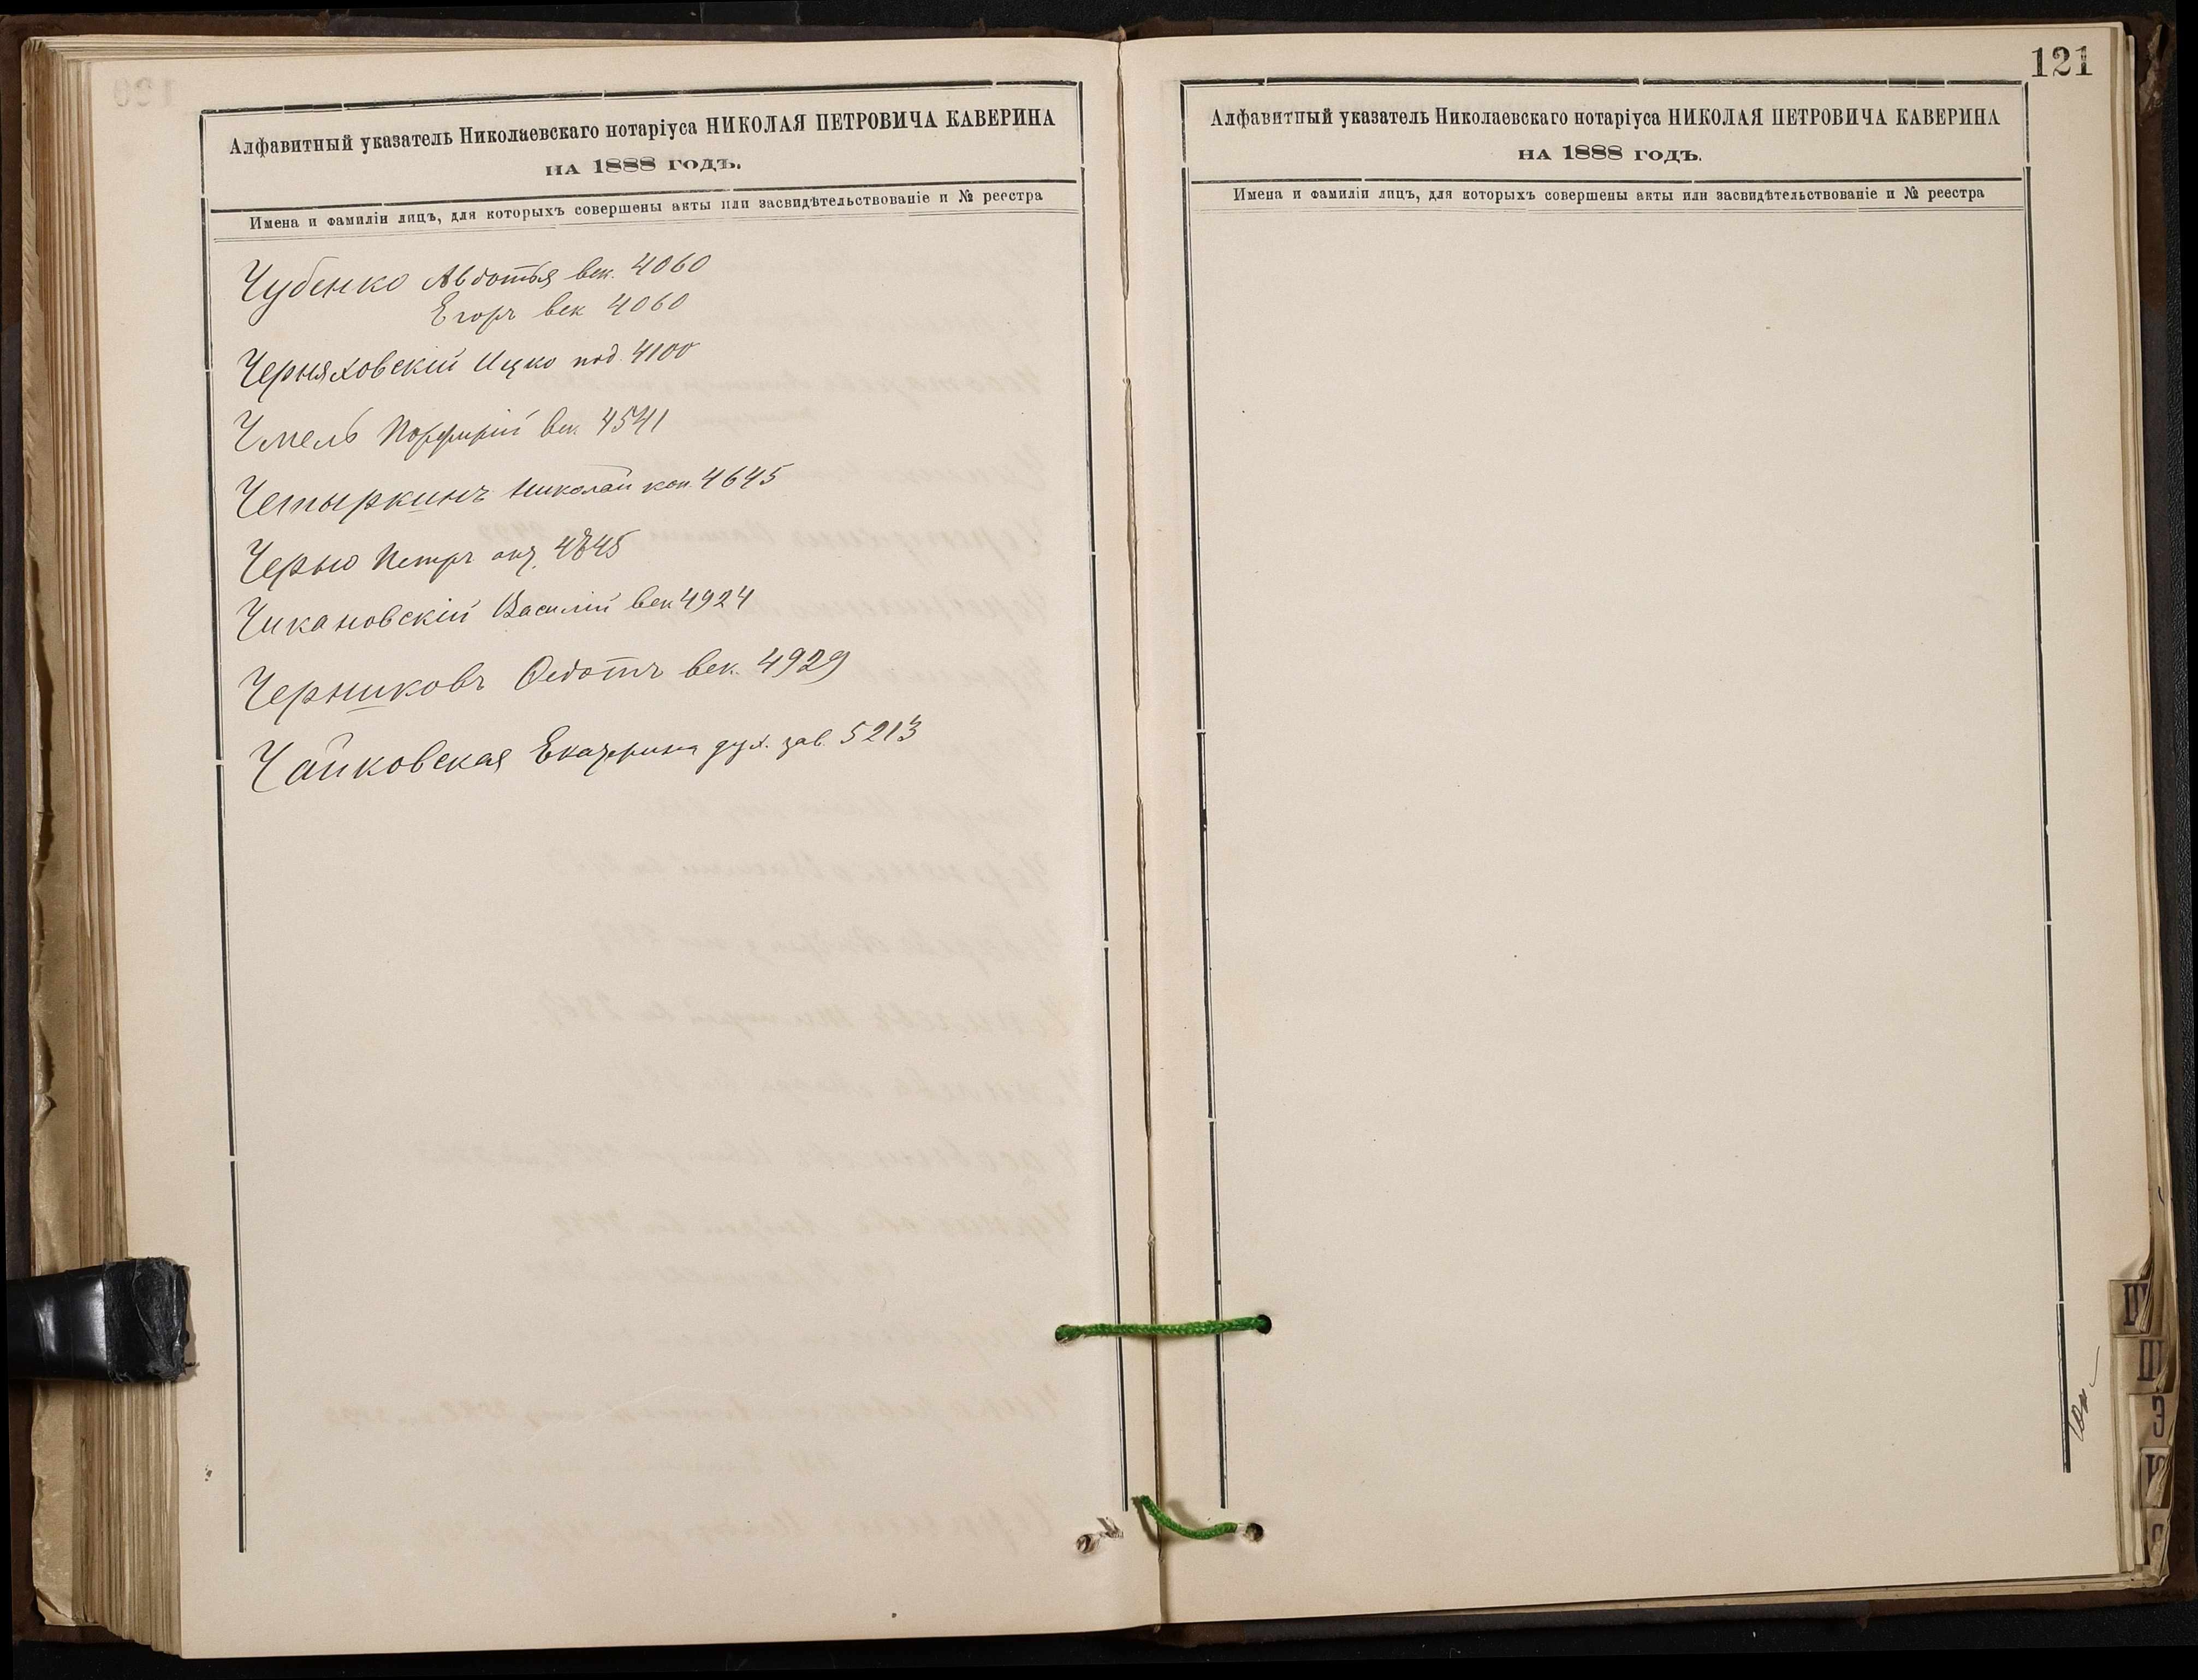 Алфавитный указатель Николаевскаго нотаріуса НИКОЛАЯ ПЕТРОВИЧА КАВЕРИНА
НА 1888 ГОДЪ.
Имена и фамиліи лицъ, для которыхъ совершены акты или засвидѣтельствованіе и № реестра
Чубенко Авдотья век. 4060
Егоръ век 4060
Черняховскій Ицко под. 4100
Чмель Порфирій век. 4541
Чепыркинъ Николай коп. 4645
Черью Петръ 4845
Чикановскій Василій век 4924
Черниковъ Федотъ век. 4929
Чайковская Екатерина дух. зав. 5213
121
Алфавитный указатель Николаевскаго нотаріуса НИКОЛАЯ ПЕТРОВИЧА КАВЕРИНА
НА 1888 ГОДЪ.
Имена и фамиліи лицъ, для которыхъ совершены акты или засвидѣтельствованіе и № реестра